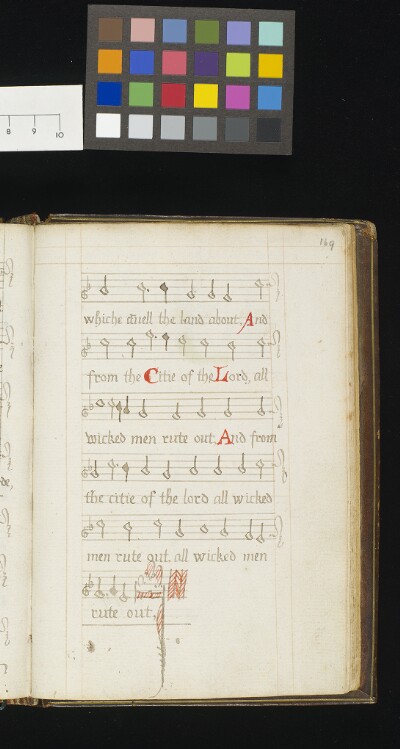 8 9 10
169
whiche dwell the land about, And
from the Citie of the Lord, all
wicked men rute out. And from
the citie of the lord all wicked
men rute out. all wicked men
rute out.